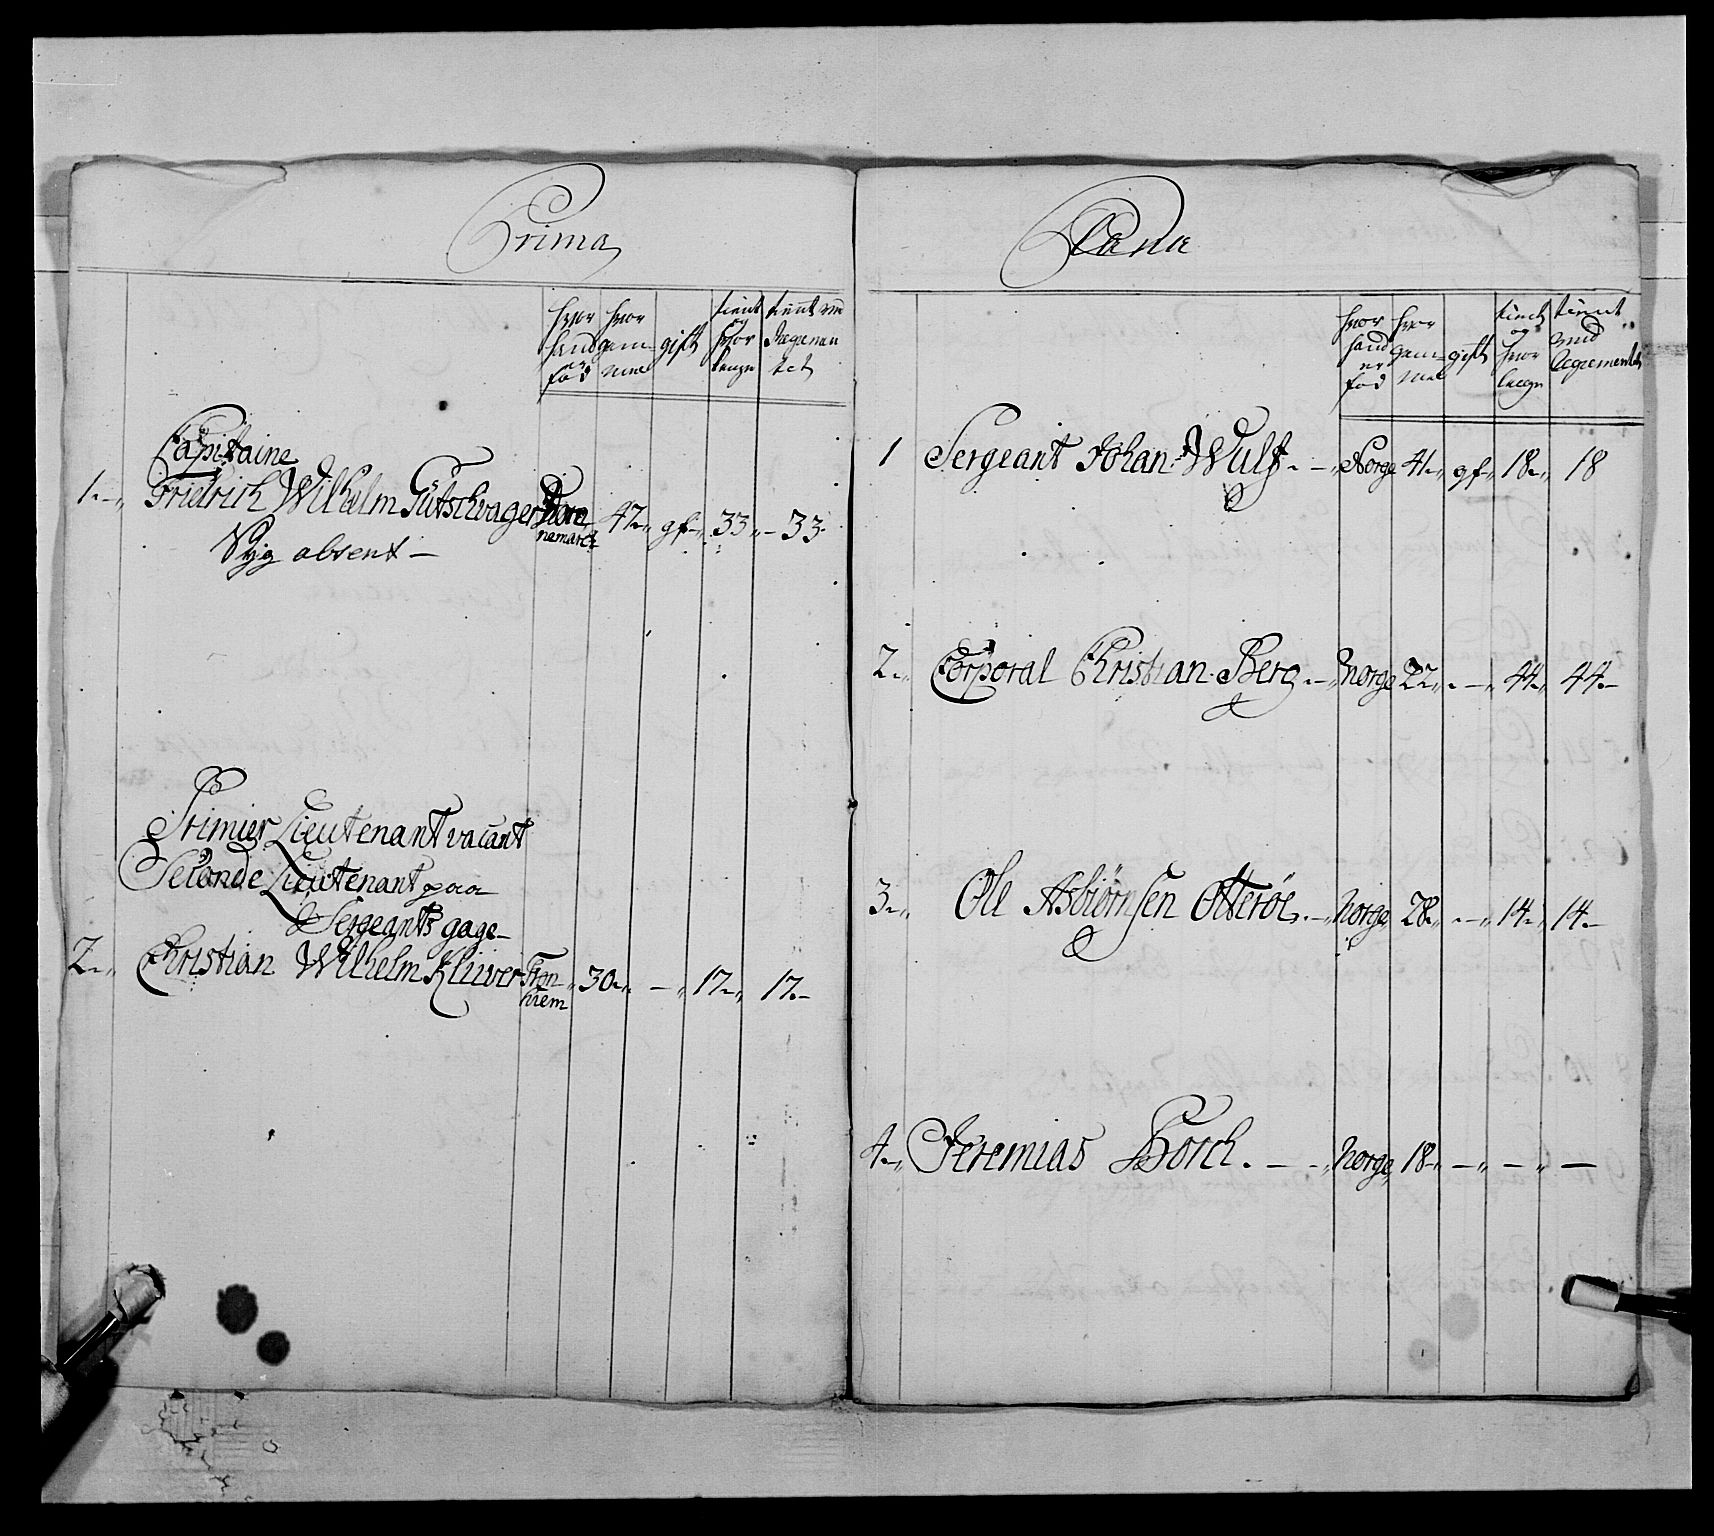 Prima
hvor hand er fød
hvor gammel
gift
tient hvor længe
tient ved Regimentet
Capitaine
1 Fridrich Wilhelm Gütschvager Dannemarck 47 gf 33 33
Syg absent
Primier Lieutenant vacant
Seconde Lieutenant paa
Sergeants gage
2 Christian Wilhelm Klüver Tronhiem 30 – 17 17
Plana
hvor hand er fød
hvor gammel
gift
tient og hvor længe
tient med Regimentet
1 Sergeant Johan Wulf Norge 41 gf 18 18
2 Corporal Christian Berg Norge 22 – 44 44
3 Ole Asbiørnsen Otterøe Norge 28 – 14 14
4 Jeremias Borch Norge 18 – – –